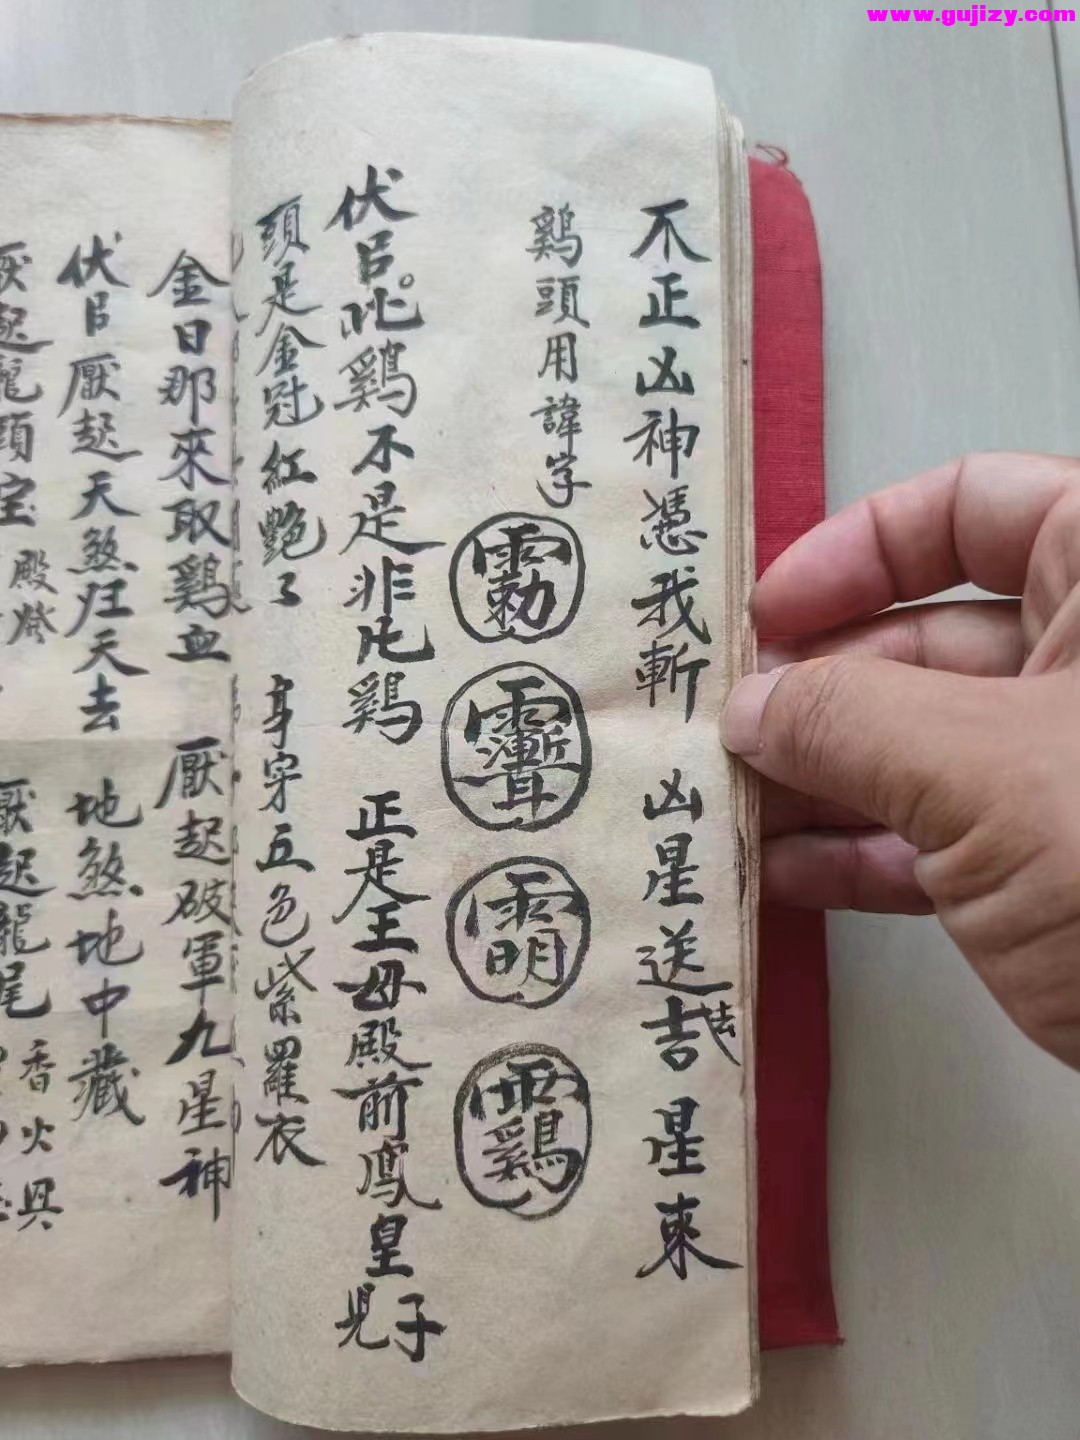 www.gujizy.com
不正凶神憑我斬 凶星送去吉星來
鷄頭用諱字
伏㠯吪鷄不是非凡鷄 正是王母殿前鳳皇兒子
頭是金冠紅艷了 身穿五色紫羅衣
金日那來取鷄血 厭起破軍九星神
伏㠯厭起天煞归天去 地煞地中藏
厭起龍頭宝殿燈
厭起龍尾香火具